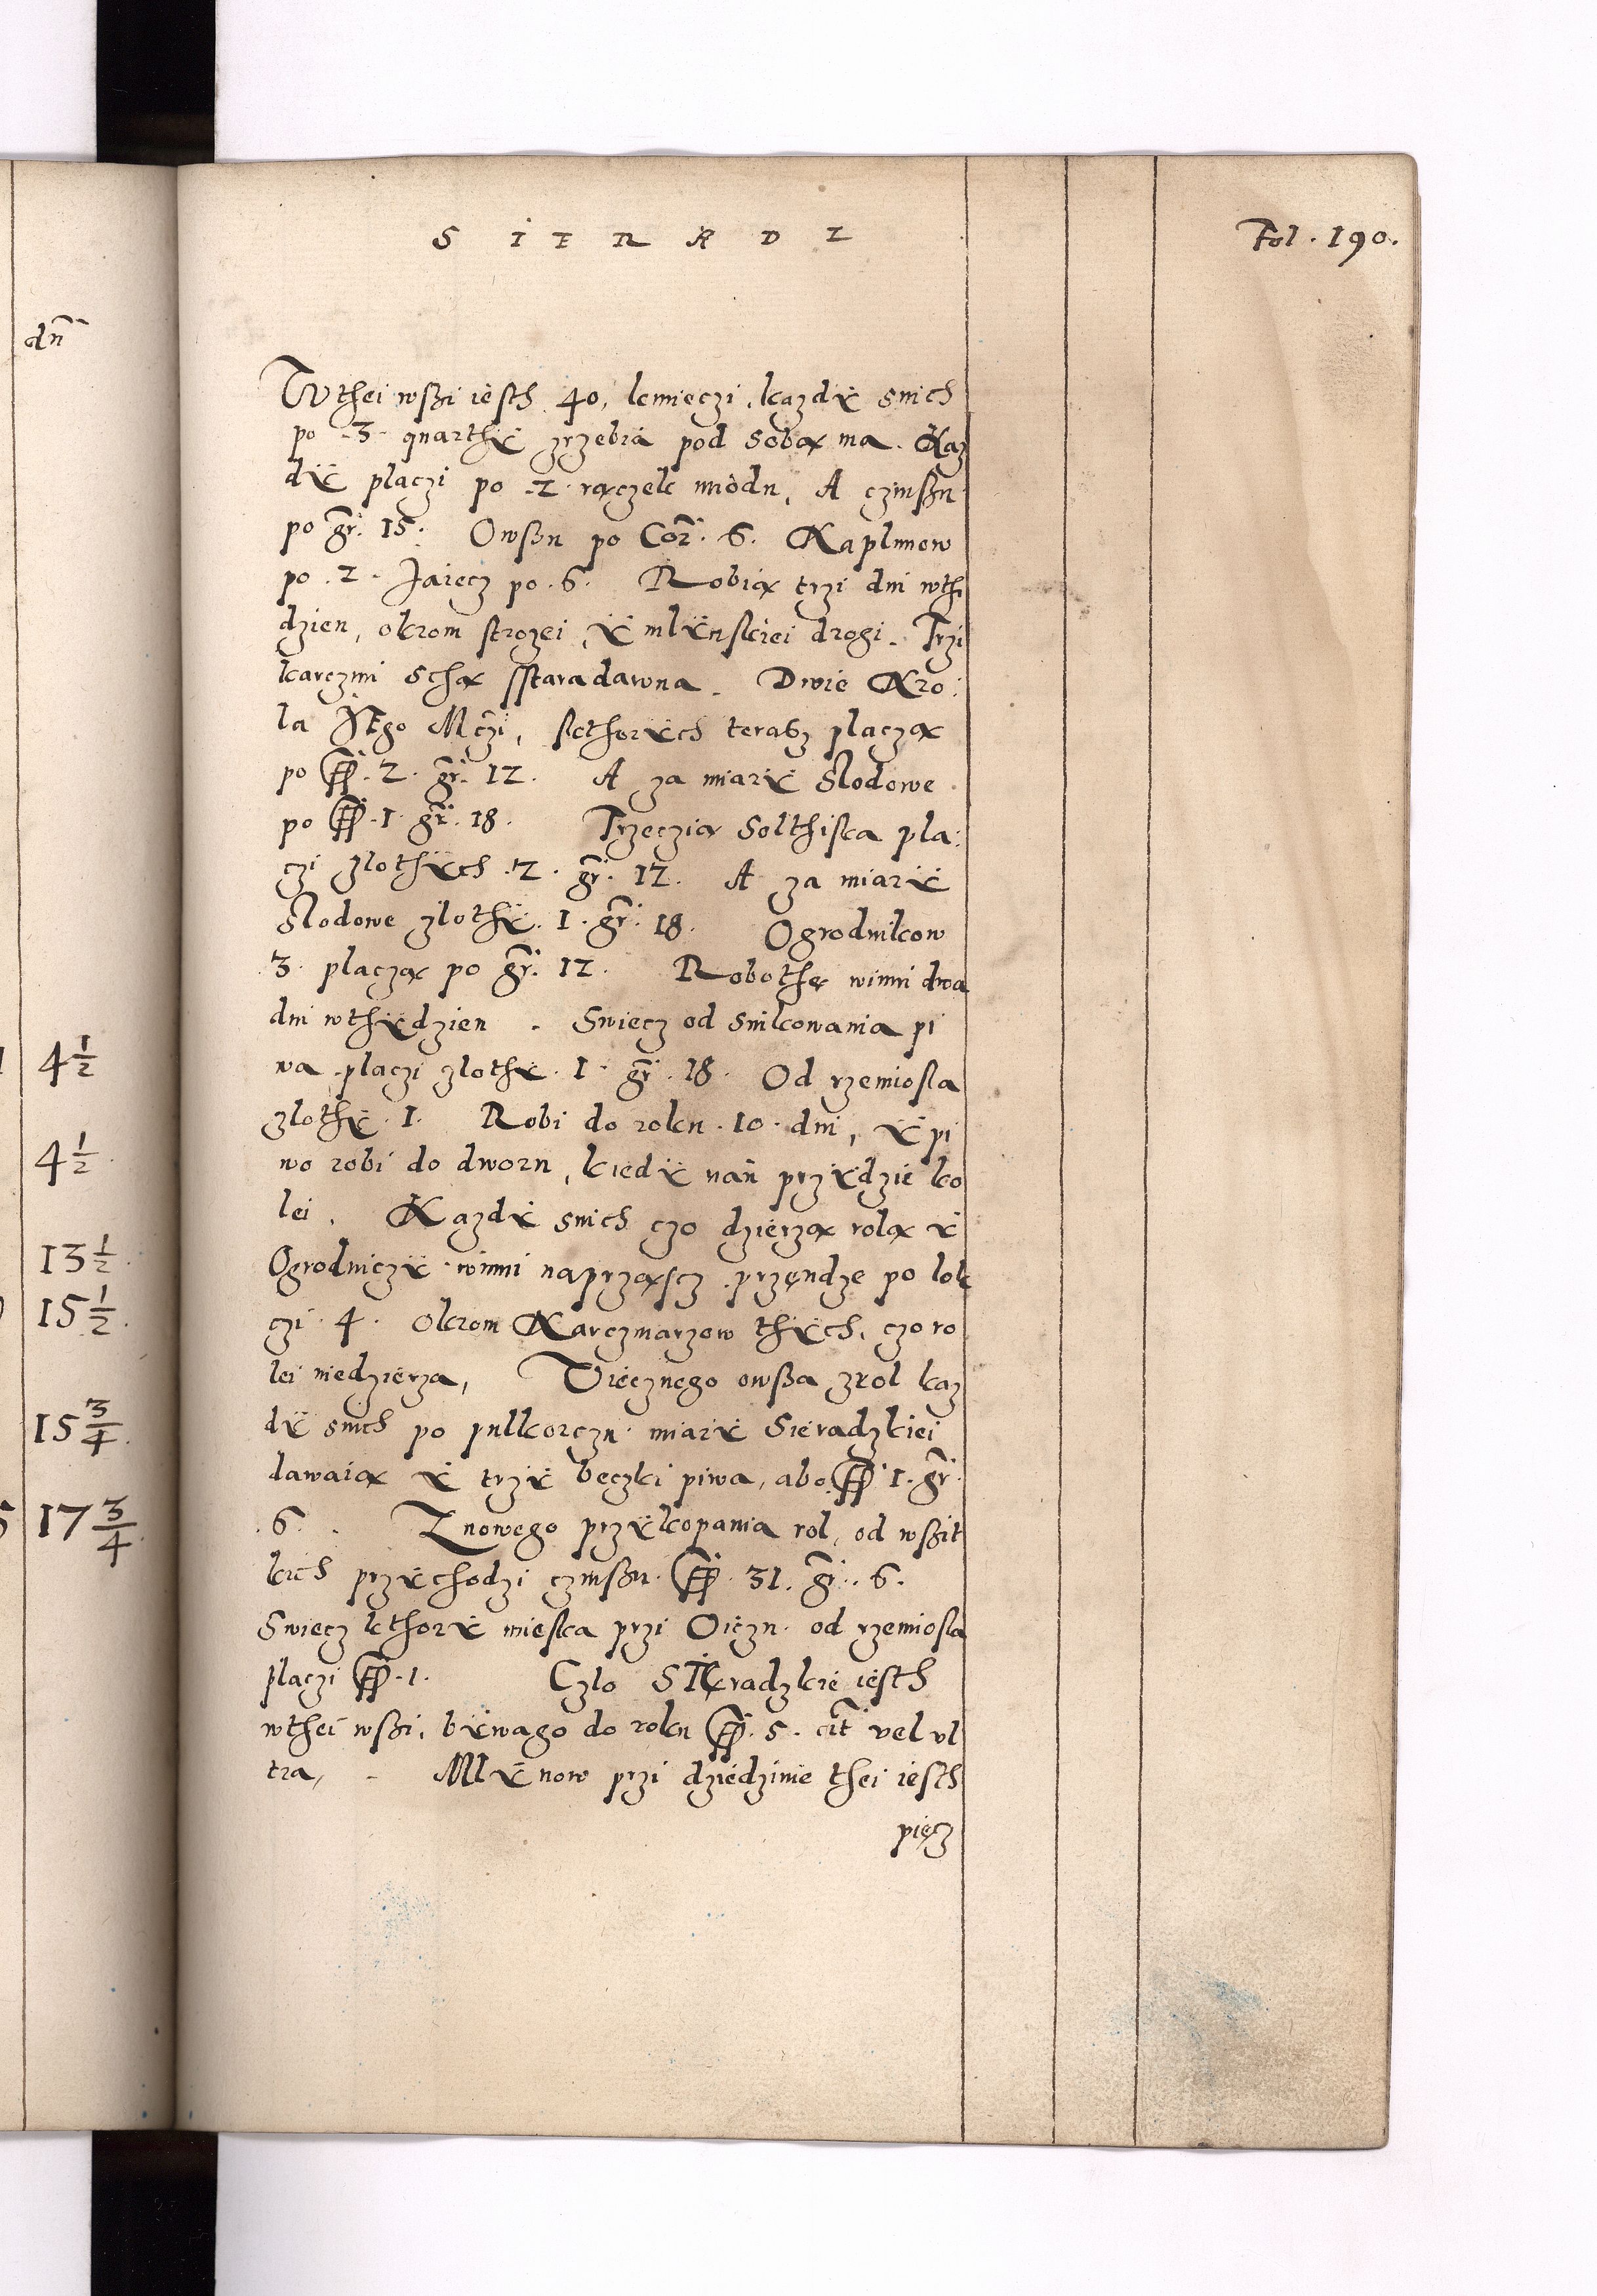 S I E R A D Z
Fol. 190.
dn̄
W thei wsżi iesth 40, kmieczi, kazdÿ snich
po 3 quarthÿ zrzebia pod sobą ma. Kaz
dÿ placzi po 2 rączek miodu, A czinßzu
po gr. 15. Owßu po Cor. 6. Kaplunow
po 2. Jaiecz po 6. Robią trzi dni wthi
dzien, okrom strozei, ÿ mlÿnskiei drogi. Trzi
karczmi schą sstaradawna. Dwie Kro:
la J̃Ego Mczi, skthorÿch teraßz placzą
po ƒƒ. 2. gr. 12. A za miarÿ Slodowe
po ƒƒ. 1. gr. 18. Trzeczia Solthiska pla:
czi zlothÿch 2. gr. 12. A za miarÿ
Slodowe zlothÿ 1. gr. 18. Ogrodnikow
3 placzą po gr. 12. Robothę winni dwa
dni wthÿdzien. Swiecz od snikowania pi
wa placzi zlothÿ 1. gr. 18. Od rzemiosla
zlothÿ 1. Robi do roku 10 dni, ÿ pi
wo robi do dworu, kiedÿ nań przÿdzie ko
lei. Kazdÿ snich czo dzierzą rolą ÿ
Ogrodniczÿ winni naprząscz przendze po lok
czi 4. Okrom Karczmarzow thÿch, czo ro
lei niedzierza, Wiecznego owßa zrol kaz
dÿ snich po pulkorczu miarÿ Sieradzkiei
dawaią ÿ trzÿ beczki piwa, abo ƒƒ 1. gr.
6. Znowego przÿkopania rol, od wßzit
kich przÿchodzi czinßzu ƒƒ 31. gr. 6.
Swiecz kthorÿ mieska przi Oiczu od rzemiosla
placzi ƒƒ. 1. Czlo SIEradzkie iesth
wthei wsżi, bÿwago do roku ƒƒ. 5. cit̄ vel vl
tra, MlÿNow przi dziedzinie thei iesth
pięcz
4 1/2
4 1/2
13 1/2
15 1/2
15 3/4
17 3/4